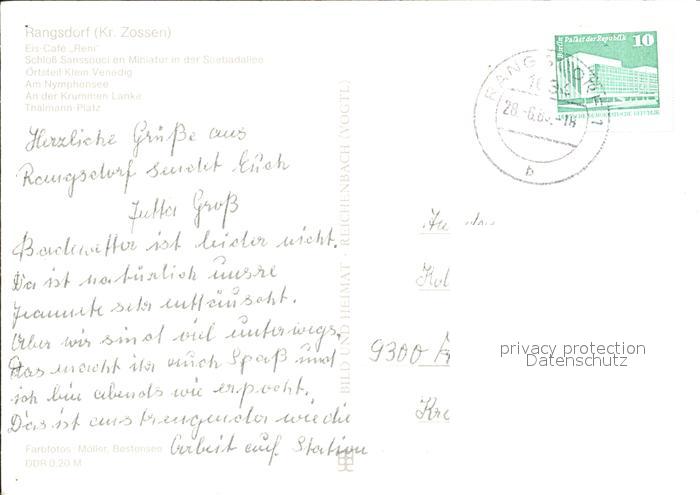 Rangsdorf (Kr. Zossen)
Eis-Café „Reni"
Schloß Sanssouci en Miniatur in der Seebadallee
Ortsteil Klein Venedig
Am Nymphensee
An der Krummen Lanke
Thälmann-Platz
Herzliche Grüße aus
Rangsdorf sendet Euch
Jutta Groß
Badewetter ist leider nicht.
Da ist natürlich unsre
Jeannete sehr enttäuscht.
Aber wir sind viel unterwegs.
Das macht ihr auch Spaß und
ich bin abends wie erpocht.
Das ist anstrengender wie die
Arbeit auf Station
Farbfotos: Möller, Bestensee
DDR 0,20 M
BILD UND HEIMAT · REICHENBACH (VOGTL)
Berlin Palast der Republik
10
DEUTSCHE DEMOKRATISCHE REPUBLIK
RANGSDORF 1
28.-6.8
-18
b
9300
Kre
privacy protection
Datenschutz